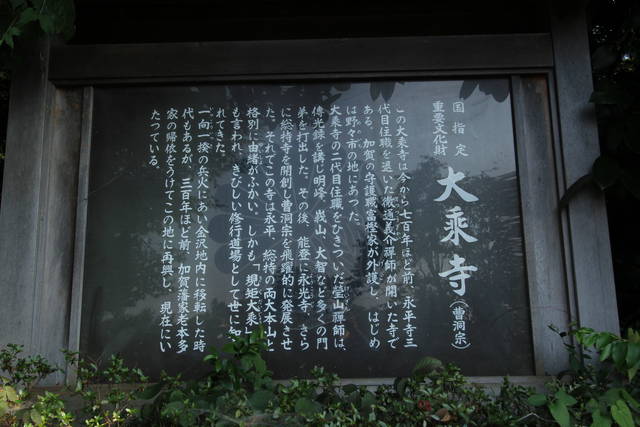 国指定
重要文化財
大乘寺（曹洞宗）
この大乘寺は今から七百年ほど前、永平寺三
代目住職を退いた徹通義介禅師が開いた寺で
ある。加賀の守護職富樫家が外護し、はじめ
は野々市の地にあった。
大乘寺の二代目住職をひきついだ瑩山禅師は、
傳光録を講じ明峰、峩山、大智など多くの門
弟を打出した。その後、能登に永光寺、さら
に総持寺を開創し曹洞宗を飛躍的に発展させ
た。それでこの寺は永平、総持の両大本山と
格別に由緒がふかい。しかも「規矩大乘」と
も言われ、きびしい修行道場として世に知ら
れてきた。
一向一揆の兵火にあい金沢地内に移転した時
代もあるが、三百年ほど前、加賀藩家老本多
家の帰依をうけてこの地に再興し、現在にい
たっている。